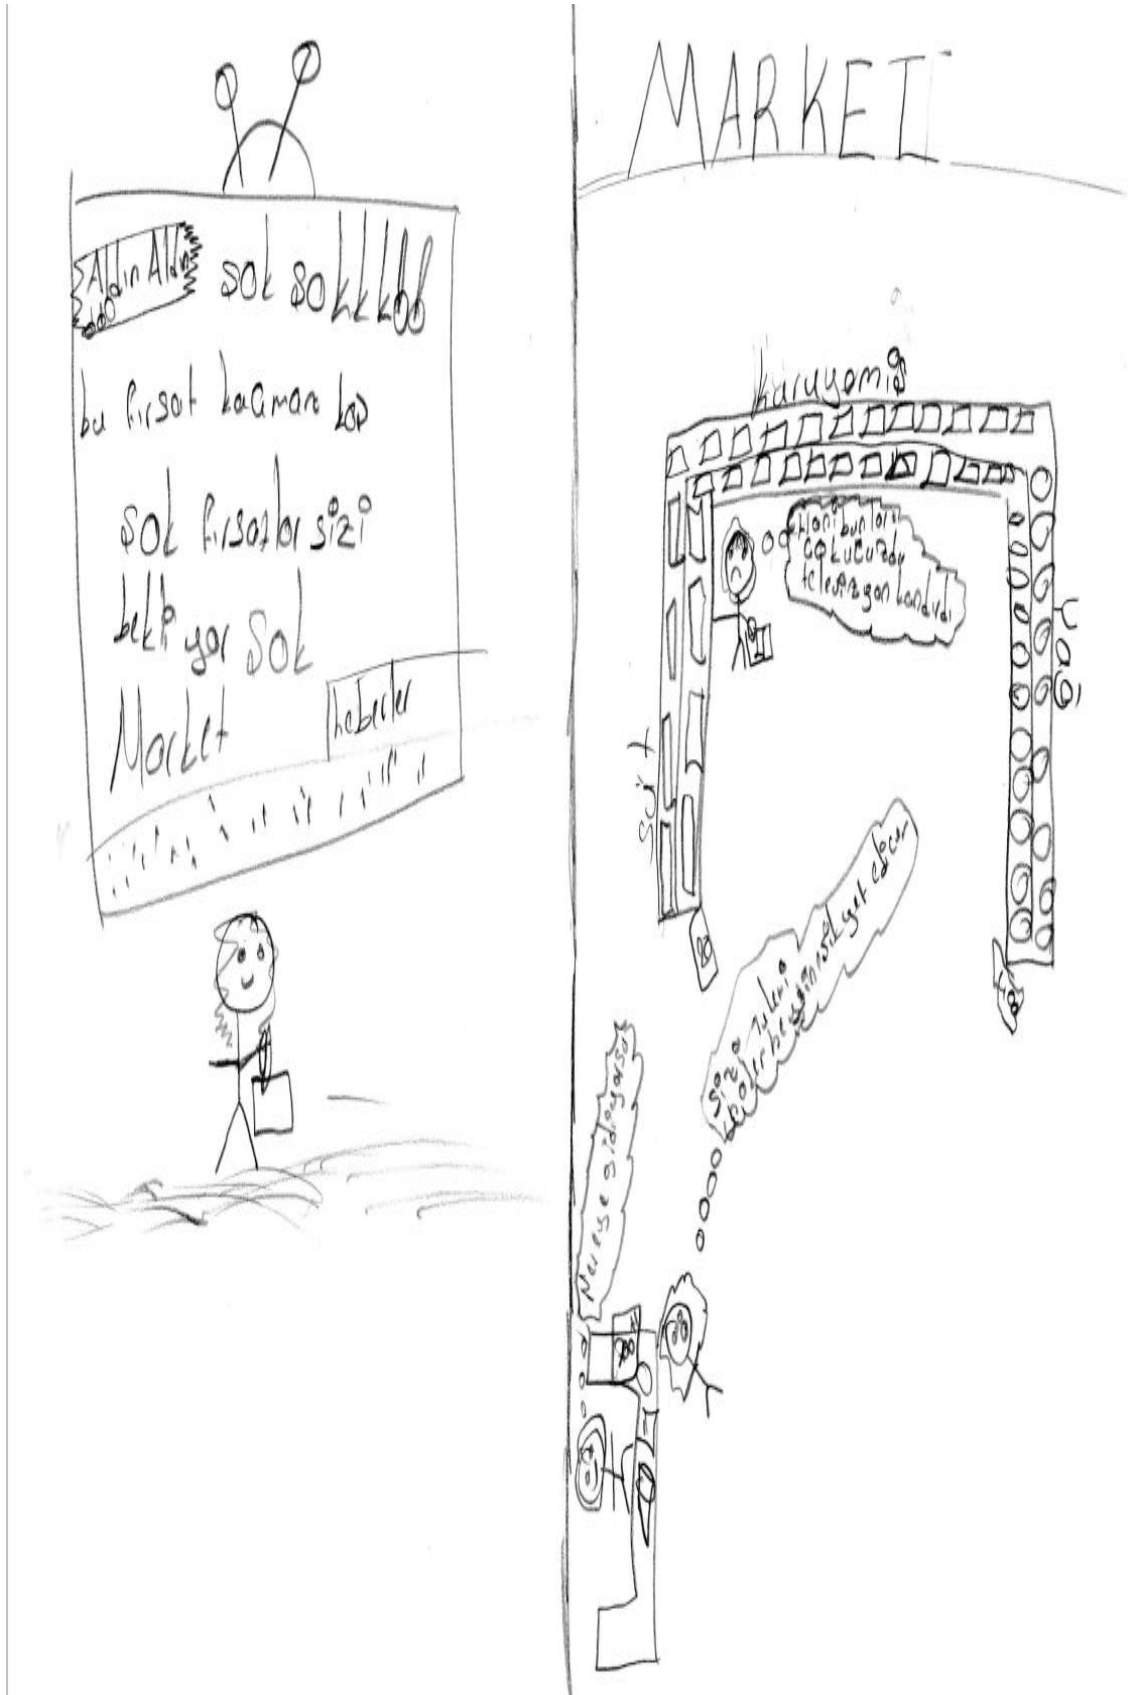 Aldın Aldın
şok şokkkk
bu fırsat kaçmaz koş
şok fırsatlar sizi
bekli yor Şok
Market
haberler
MARKET
kuruyemiş
Hani bunlar
çok ucuzdu
televizyon kandırdı
yağ
süt
sizi
Nereye gidiyorsa